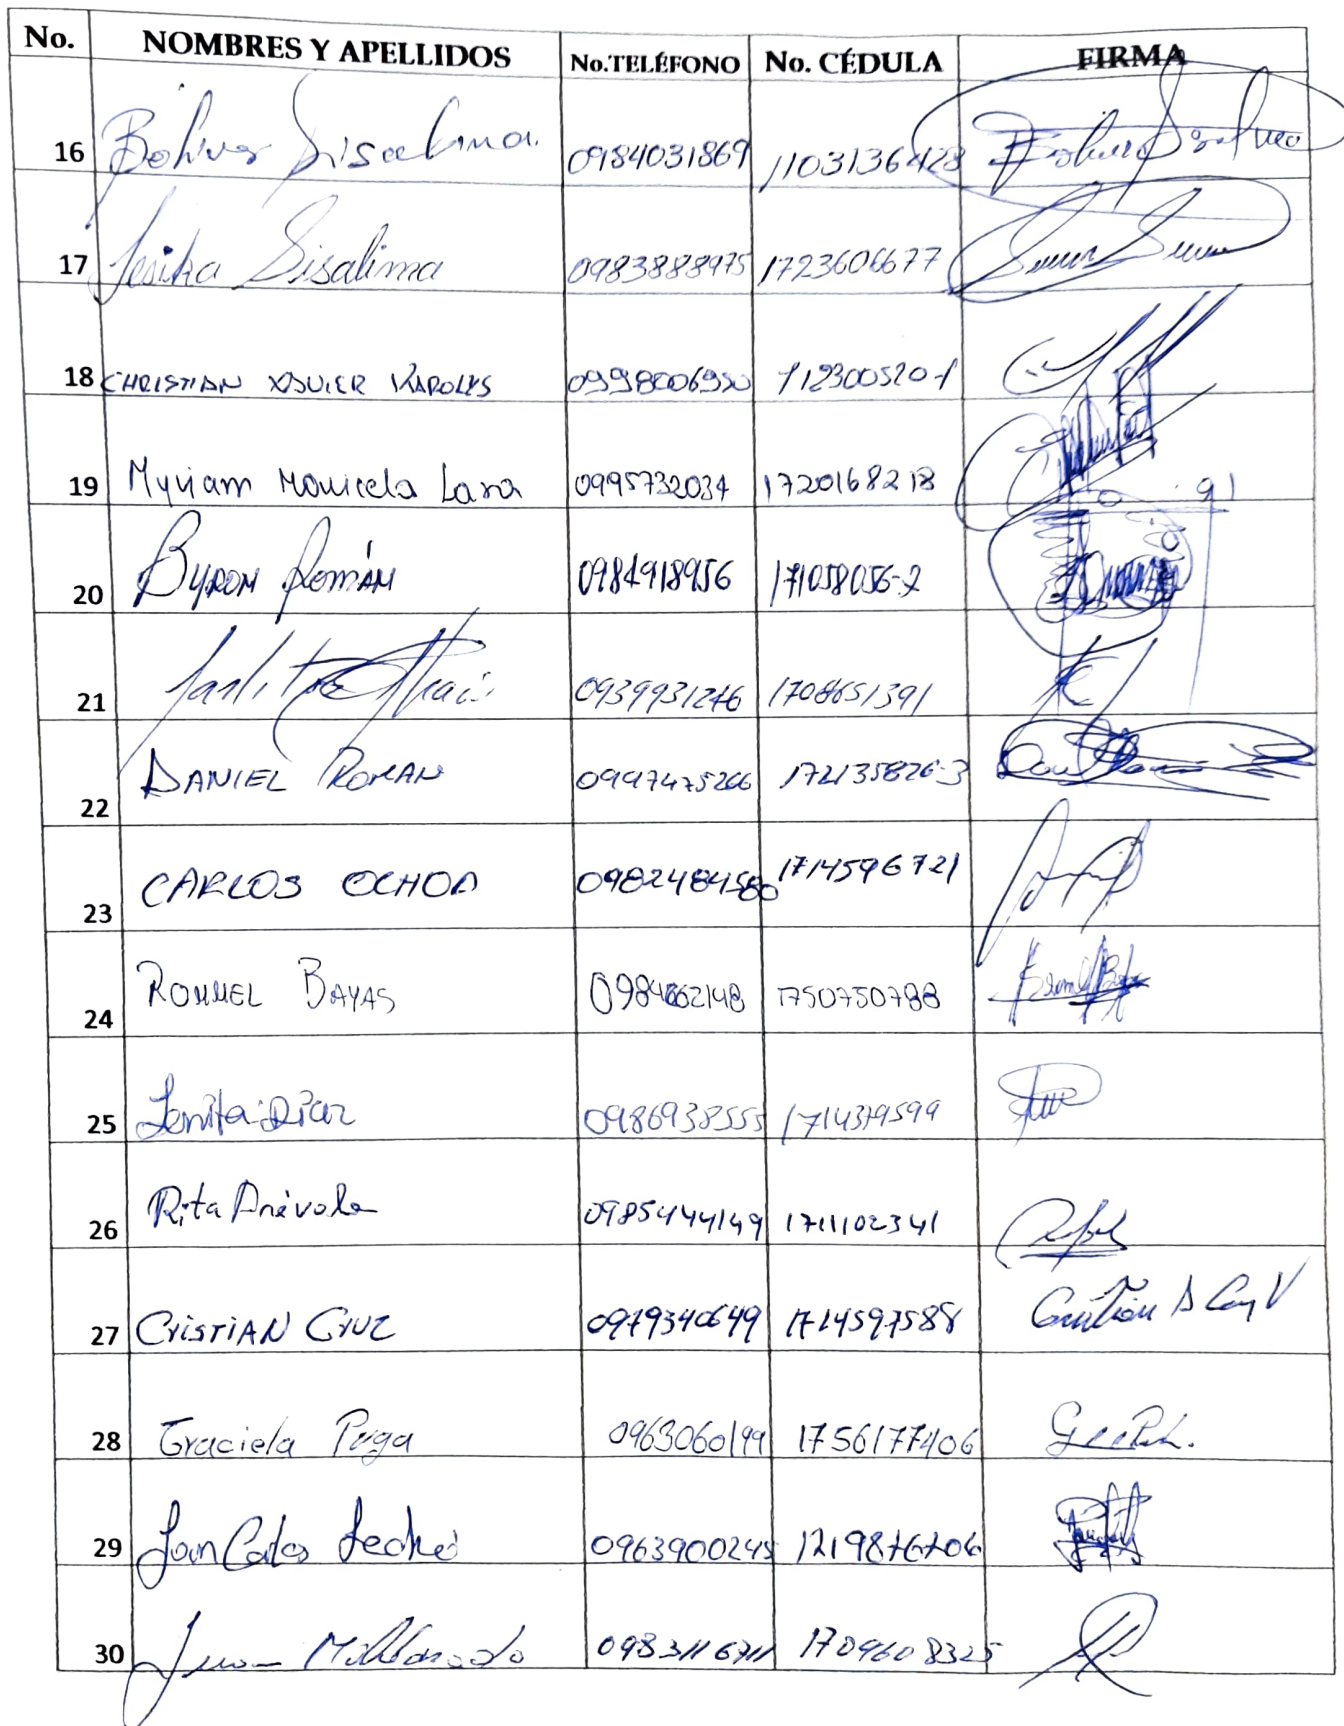 No. NOMBRES Y APELLIDOS No.TELÉFONO No. CÉDULA FIRMA
16 Bolivar Sisalima. 0984031869 1103136428
17 Jesika Sisalima 0983888975 1723606677
18 CHRISTIAN XAVIER KAROLYS 0998006950 712300520-1
19 Myriam Maricela Lara 0995732034 1720168218
20 BYRON ROMÁN 0984918956 171058056-2
21 0939931246 1708651391
22 DANIEL ROMAN 0997475266 172135826-3
23 CARLOS OCHOA 0982484580 1714596721
24 ROMMEL BAYAS 0984662148 1750750788
25 Díaz 0986938555 1714379599
26 Rita Arévalo 0985444149 1711102341
27 CRISTIAN CRUZ 0979340649 1714597588
28 Graciela Puga 0963060199 1756177406
29 Juan Carlos 0963900245
30 Juan Maldonado 0983116711 1709608325